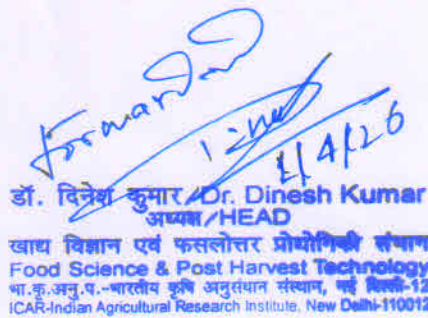 Forwarded
Dinesh
1/4/26
डॉ. दिनेश कुमार/Dr. Dinesh Kumar
अध्यक्ष/HEAD
खाद्य विज्ञान एवं फसलोत्तर प्रोद्योगिकी संभाग
Food Science & Post Harvest Technology
भा.कृ.अनु.प.-भारतीय कृषि अनुसंधान संस्थान, नई दिल्ली-12
ICAR-Indian Agricultural Research Institute, New Delhi-110012